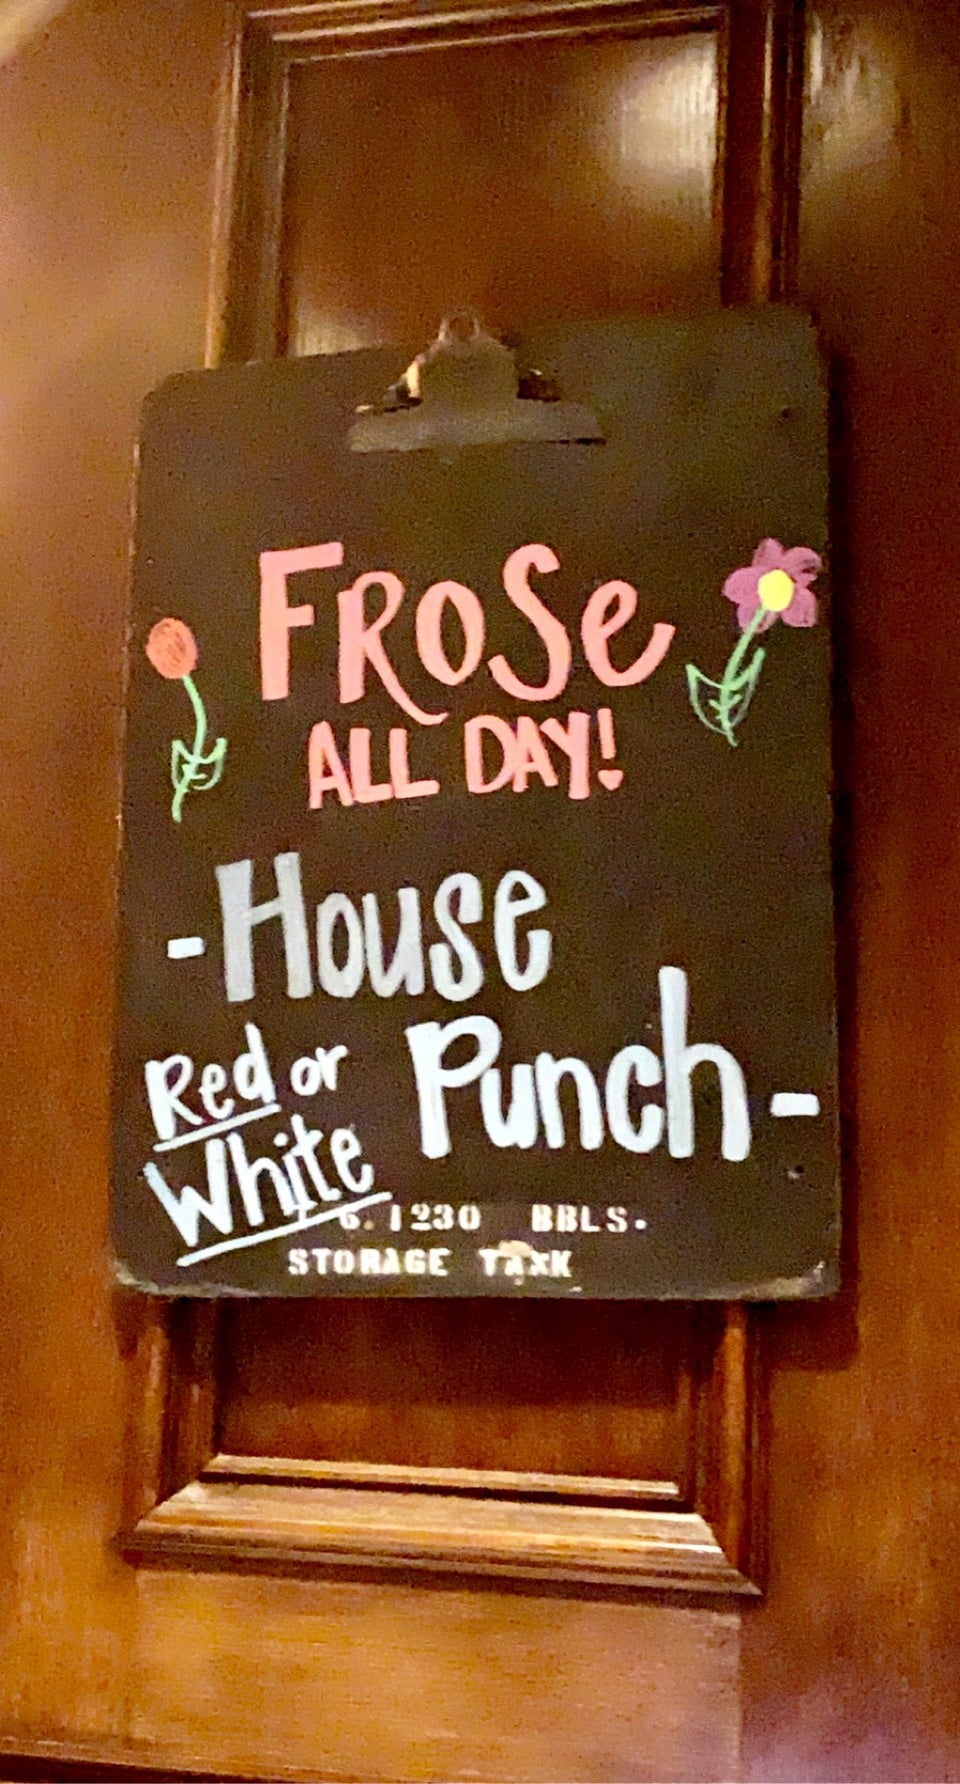 FRoSe
ALL DAY!
-House
Punch-
Red or
White
6.1230 BBLS.
STORAGE TANK